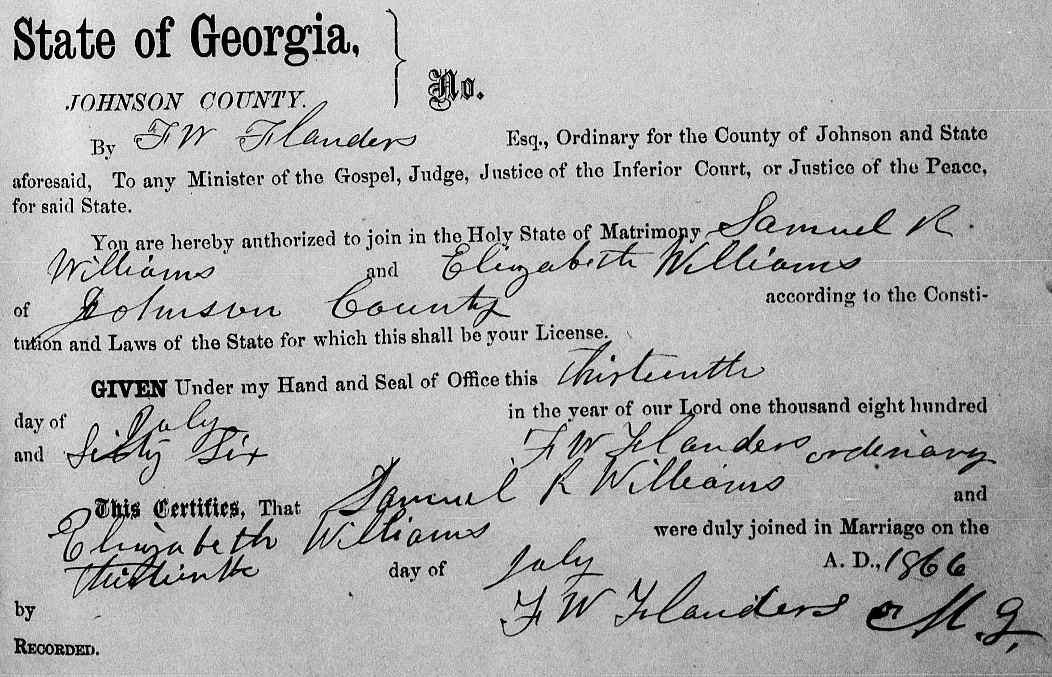 State of Georgia,
JOHNSON COUNTY. No.
By F W Flanders Esq., Ordinary for the County of Johnson and State
aforesaid, To any Minister of the Gospel, Judge, Justice of the Inferior Court, or Justice of the Peace,
for said State.
You are hereby authorized to join in the Holy State of Matrimony Samuel R.
Williams and Elizabeth Williams
of Johnson County according to the Consti-
tution and Laws of the State for which this shall be your License.
GIVEN Under my Hand and Seal of Office this thirteenth
day of July in the year of our Lord one thousand eight hundred
and Sixty Six F W Flanders ordinary
This Certifies, That Samuel R Williams and
Elizabeth Williams were duly joined in Marriage on the
thirteenth day of July A. D., 1866
by F W Flanders M. G.
RECORDED.